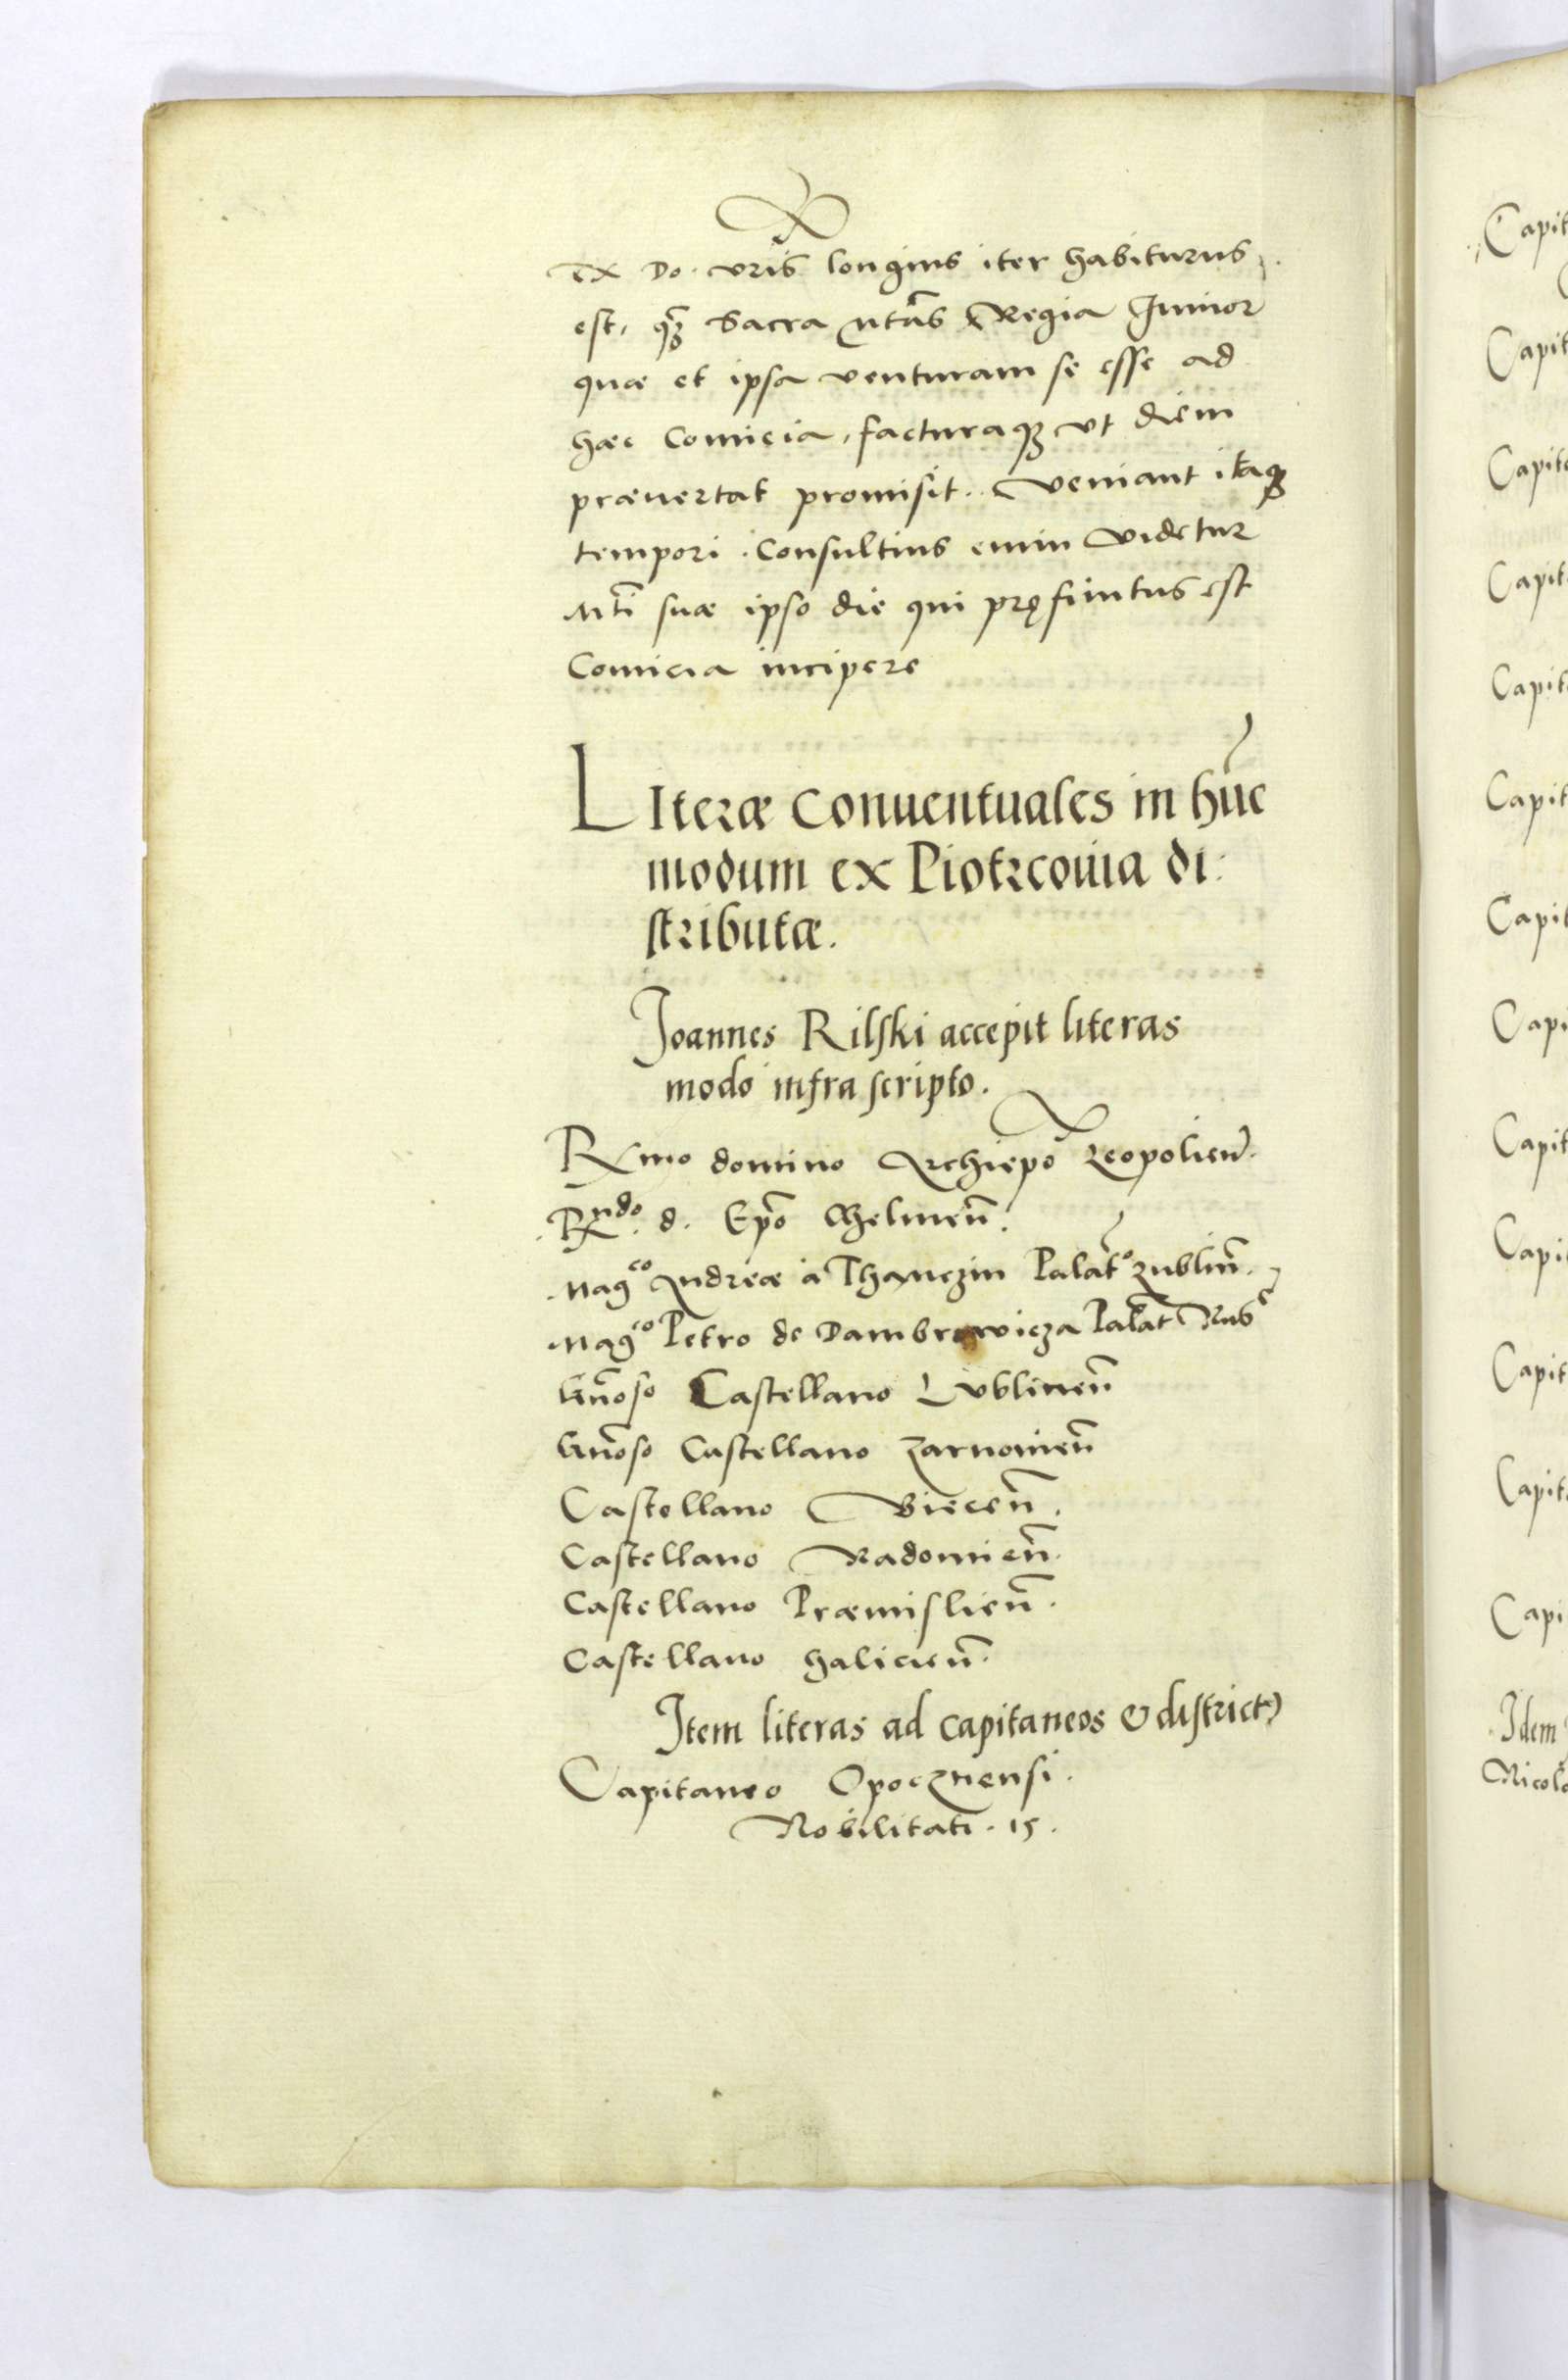 ex Do. vr̃is longius iter habiturus
est, q̃ꝫ Sacra Mtãs Regia Iunior
quæ et ipsa venturam se esse ad
hæc Comicia, facturaqꝫ vt diem
præuertat promisit. Veniant itaqꝫ
tempori. Consultius enim videtur
Mti̅ suæ ipso die qui pręfinitus est
Comicia incipere
LIteræ Conuentuales in hũc
modum ex Piotrcouia di:
stributæ.
Joannes Rilski accepit literas
modo infra scripto.
Rmo domino Archiepo̅ Leopolien̅.
Rndo. d. Epo̅ Chelmen̅.
Mag̅co Andreæ à Thanczin Palat̅o Lublin̅.
Mag̅co Petro de Dambrowicza Palat̅ Rad
Gn̅oso Castellano Lublinen̅
Gn̅oso Castellano Zarnouien̅
Castellano Viecen̅.
Castellano Radomien̅.
Castellano Præmislien̅.
Castellano Halicien̅.
Item literas ad capitaneos & district
Capitaneo Opocznensi.
Nobilitati. 15.
Idem